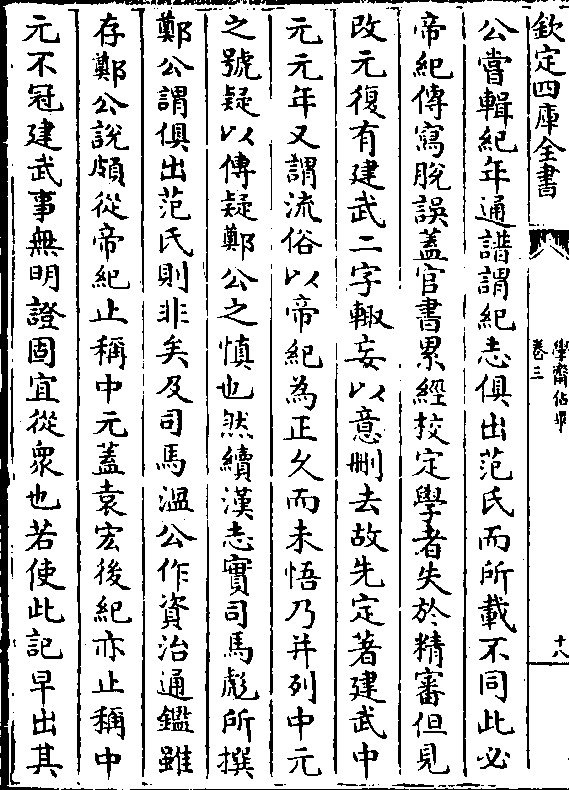 欽定四庫全書
學齋佔畢
卷三
十八
公嘗輯紀年通譜謂紀志俱出范氏而所載不同此必
帝紀傳寫脫誤蓋官書累經挍定學者失於精審但見
改元復有建武二字輙妄以意刪去故先定著建武中
元元年又謂流俗以帝紀為正久而未悟乃并列中元
之號疑以傳疑鄭公之慎也然續漢志實司馬彪所撰
鄭公謂俱出范氏則非矣及司馬溫公作資治通鑑雖
存鄭公說頗從帝紀止稱中元蓋袁宏後紀亦止稱中
元不冠建武事無明證固宜從衆也若使此記早出其